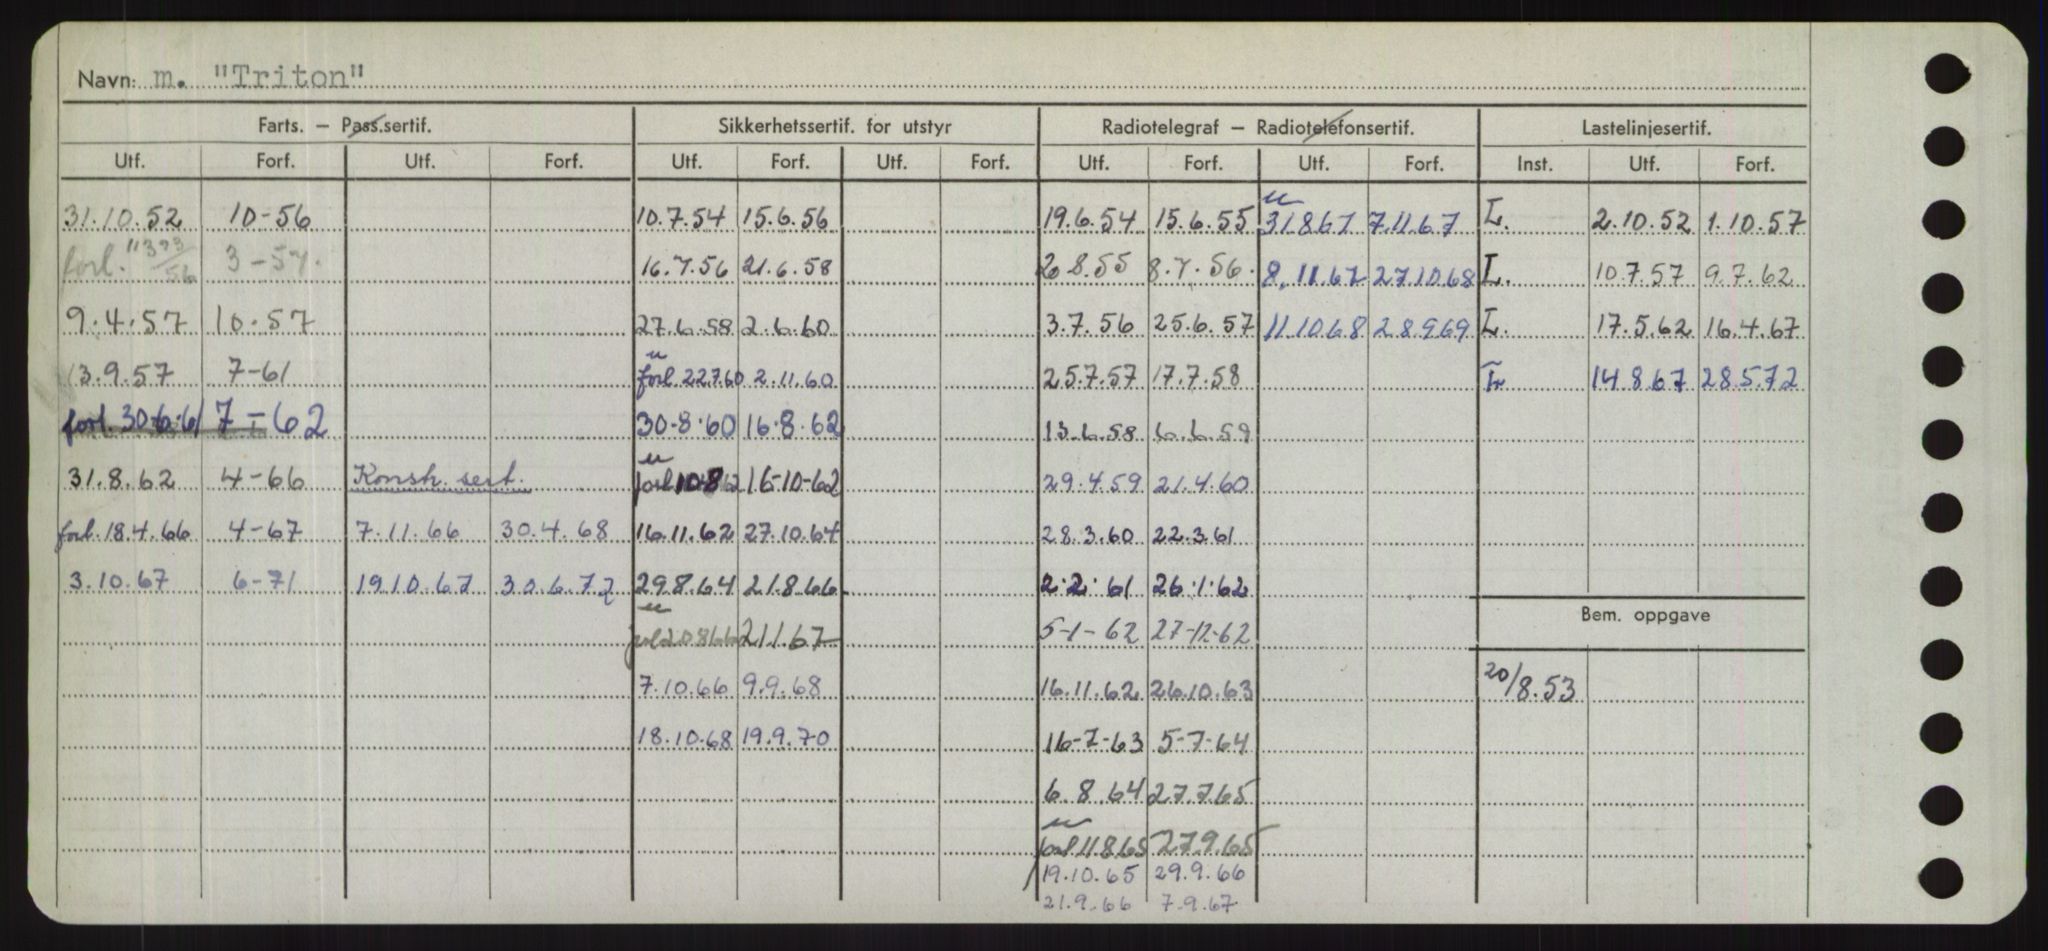 Navn: m. "Triton"
Farts. — Pass.sertif. Sikkerhetssertif. for utstyr Radiotelegraf — Radiotelefonsertif. Lastelinjesertif.
Utf. Forf. Utf. Forf. Utf. Forf. Utf. Forf. Utf. Forf. Utf. Forf. Inst. Utf. Forf.
31.10.52 10-56 10.7.54 15.6.56 19.6.54 15.6.55 u 31867 7.11.67 L. 2.10.52 1.10.57
forl. 3-57. 16.7.56 21.6.58 2 8.55 8.7.56. 8.11.67 271068 L. 10.7.57 9.7.62
9.4.57 10.57 27.6.58 2.6.60 3.7.56 25.6.57 111068 28969 L. 17.5.62 16.4.67
13.9.57 7-61 u forl 22760 2.11.60 25.7.57 17.7.58 14867 28572
forl. 30.6.61 7-62 30-8.60 16.8.62 13.6.58 6.6.59
31.8.62 4-66 Konsh. sert. u forl 10862 16-10-62 29.4.59 21.4.60
forl. 18.4.66 4-67 7.11.66 30.4.68 16.11.62 27.10.64 28.3.60 22.3.61
3.10.67 6-71 1910.67 30.6.72 298.64 21.8.66 2.2.61 26.1.62
u forl 20866 211.67 5-1-62 27-12-62
Bem. oppgave
7.10.66 9.9.68 16.11.62 26.10.63 20/8.53
18.10.68 19.9.70 16-7-63 5-7-64
6.8.64 27.7.65
u forl 11865 27.9.65
19.10.65 29.9.66
21.9.66 7.9.67